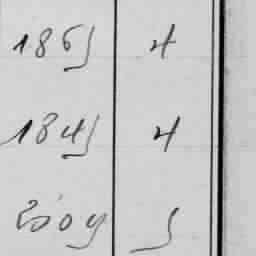 1865 4
1845 4
2009 5